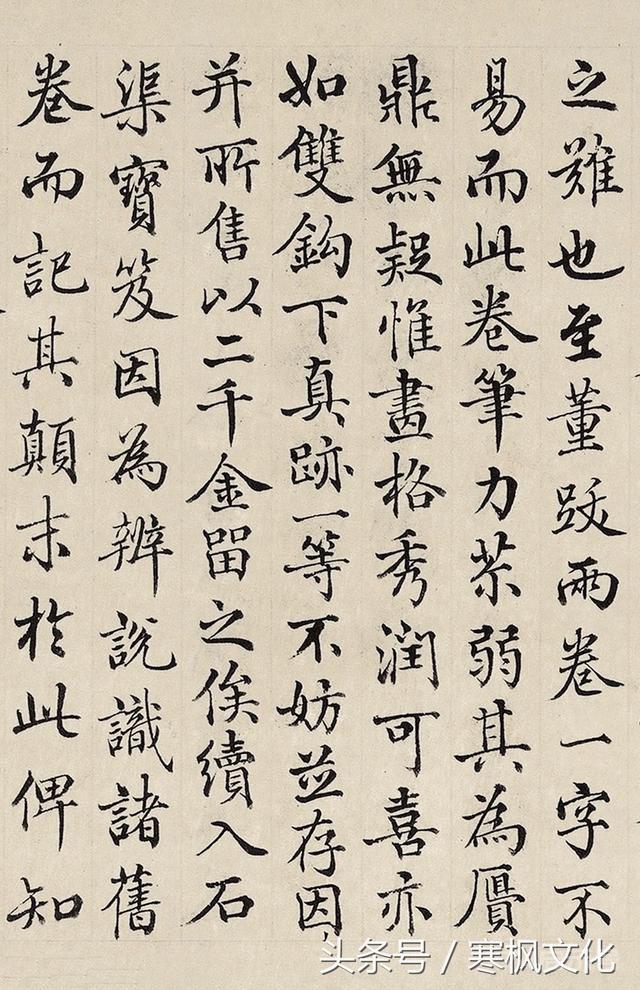 之難也至董跋兩卷一字不
易而此卷筆力苶弱其為贋
鼎無疑惟畫格秀潤可喜亦
如雙鈎下真跡一等不妨並存因
并所售以二千金留之俟續入石
渠寶笈因為辨說識諸舊
卷而記其顛末於此俾知
头条号 / 寒枫文化